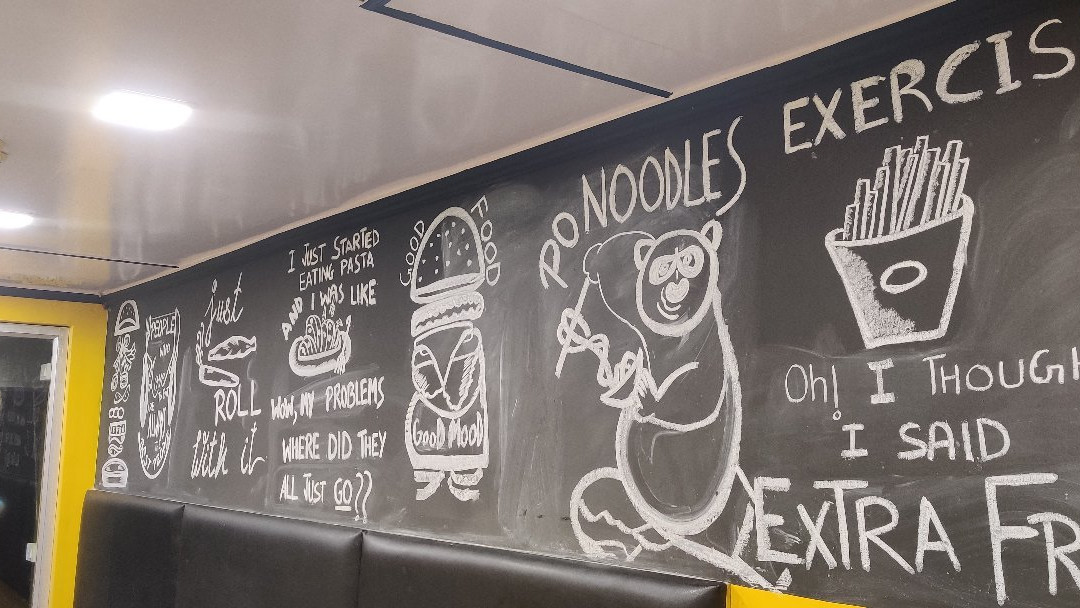 PEOPLE
just
ROLL
with it
I JUST STARTED
EATING PASTA
AND I WAS LIKE
WOW, MY PROBLEMS
WHERE DID THEY
ALL JUST GO??
GOOD FOOD
GOOD MOOD
PO NOODLES
EXERCIS
Oh! I THOUGH
I SAID
EXTRA FR